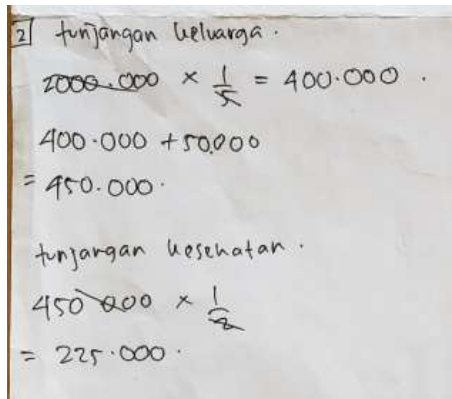 2 tunjangan keluarga.
2000.000 × 1/5 = 400.000.
400.000 + 50.000
= 450.000.
tunjangan kesehatan.
450 000 × 1/2
= 225.000.